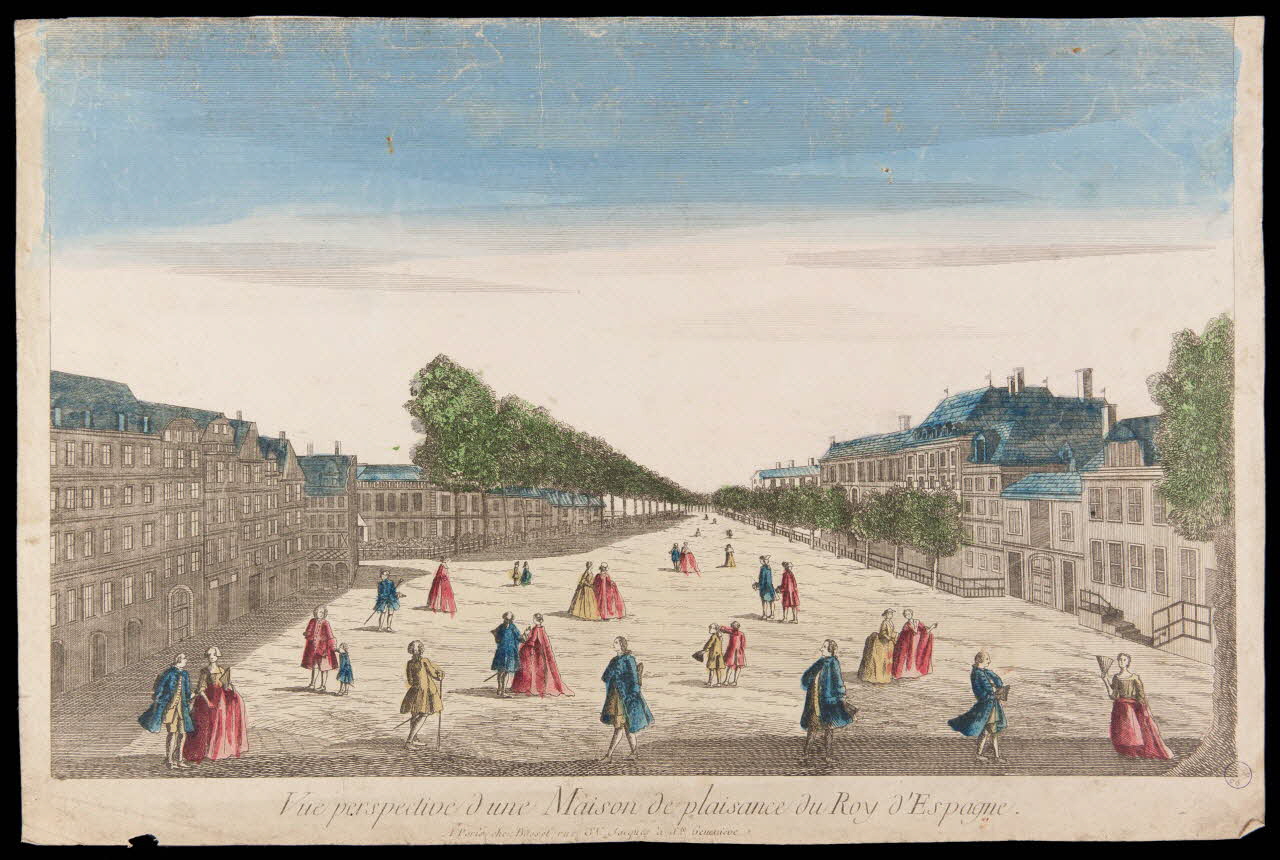 Vüe perspective d'une Maison de plaisance du Roy d'Espagne.
A Paris chez Basset rue St. Jacques à Ste. Genevieve.